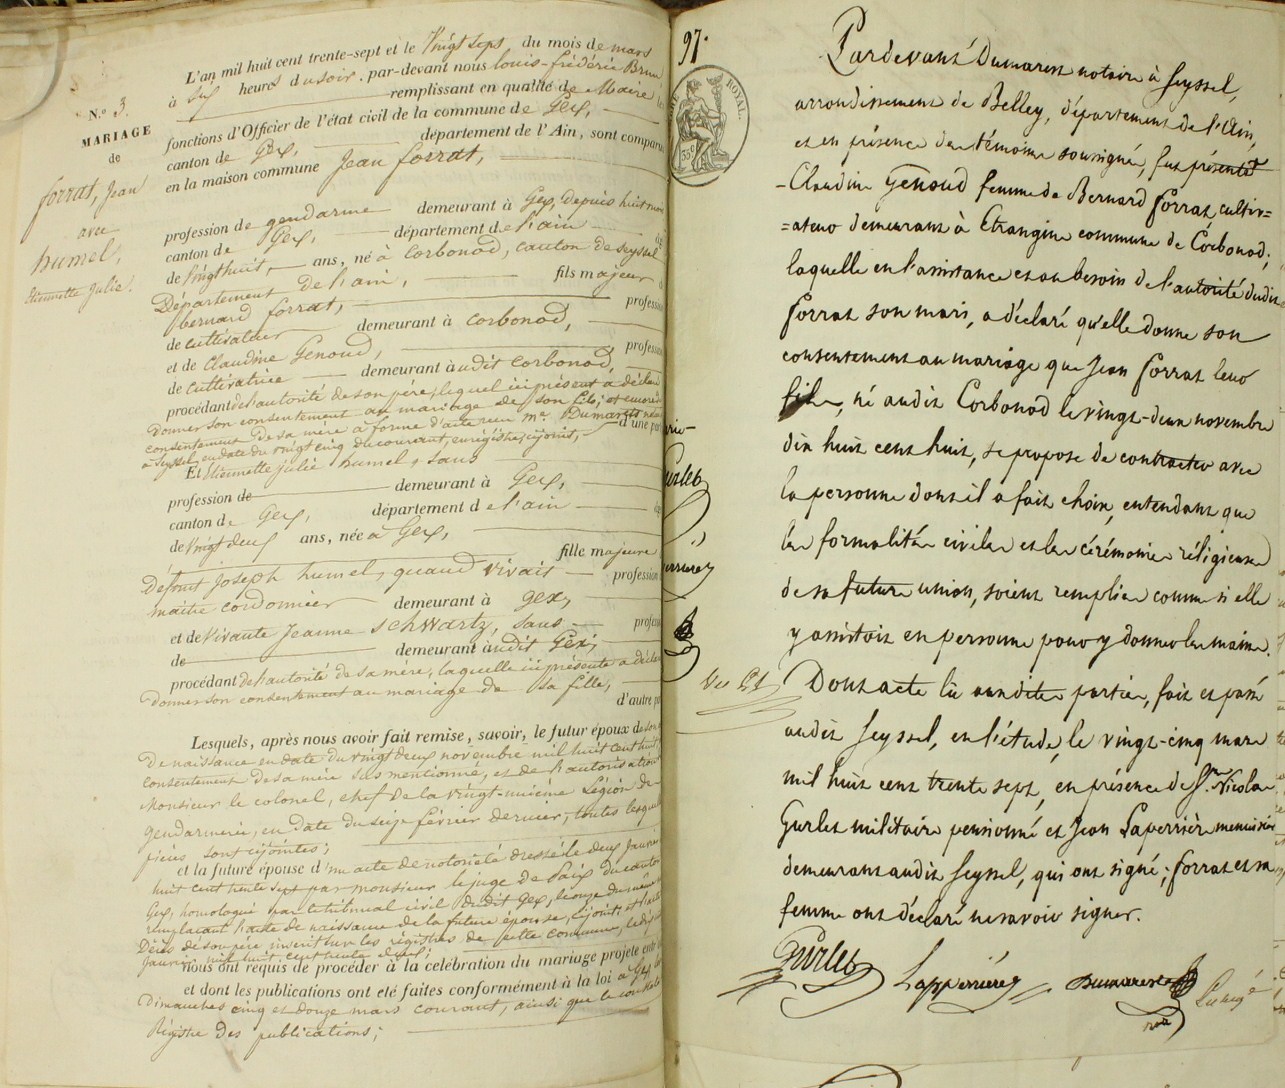 N.º 3.
MARIAGE
de
forrat, Jean
avec
humel,
Etiennette Julie.
L'an mil huit cent trente-sept et le Vingt sept du mois de mars
à six heures du soir, par-devant nous louis-frédéric Brun
remplissant en qualité de Maire
fonctions d'Officier de l'état civil de la commune de Gex,
canton de Gex, département de l'Ain, sont comparus
en la maison commune Jean forrat,
profession de gendarme demeurant à Gex, depuis huit mois
canton de Gex, département de l'ain
de Vingt huit, ans, né à Corbonod, canton de Seyssel
Département de l'ain, fils majeur
bernard forrat, profession
de cultivateur demeurant à Corbonod,
et de Claudine Genoud, profession
de cultivatrice demeurant audit Corbonod,
procédant de l'autorité de son père, lequel ici présent a déclaré
donner son consentement au mariage de son fils, et encore du
consentement de sa mère à forme d'acte reçu me Dumarest
à Seyssel, en date du vingt cinq du courant, enregistré, cijoint, d'une part
Et Etiennette julie humel, sans
profession de demeurant à Gex,
canton de Gex, département de l'ain
de vingt deux ans, née à Gex,
fille majeure
défunt Joseph humel, quand vivait profession
maitre cordonnier demeurant à Gex,
et de vivante Jeanne Schwartz, sans profession
de demeurant audit Gex;
procédant de l'autorité de sa mère, laquelle ici présente a déclaré
donner son consentement au mariage de sa fille,
d'autre part
Lesquels, après nous avoir fait remise, savoir, le futur époux de son
De naissance en date du vingt deux novembre mil huit cent huit,
consentement de sa mère sus mentionné, et de l'autorisation
Monsieur le colonel, chef de la vingt-unième Légion de
gendarmerie, en date du seize février dernier, toutes lesquelles
pièces sont cijointes;
et la future épouse d'un acte de notoriété dressé le deux Janvier
huit cent trente sept par monsieur le juge de Paix du canton
Gex, homologué par le tribunal civil dudit Gex, le onze du même
remplaçant l'acte de naissance de la future épouse, cijoint, et l'acte
Décès de son père inscrit sur les registres de cette commune, le dix
Janvier mil huit cent trente deux;
nous ont requis de procéder à la célébration du mariage projeté entr
et dont les publications ont été faites conformément à la loi à Gex les
Dimanches cinq et douze mars courant, ainsi que le constate
Régistre des publications;
97.
ROYAL.
35c
Pardevant Dumarest notaire à Seyssel,
arrondissement de Belley, département de l'Ain,
et en présence des témoins soussignés, fut présente
Claudine Genoud femme de Bernard forrat cultiv=
=ateur demeurant à Etrangin commune de Corbonod;
laquelle en l'assistance et au besoin de l'autorité dudit
forrat son mari, a déclaré qu'elle donne son
consentement au mariage que Jean forrat leur
fils, né audit Corbonod le vingt-deux novembre
dix huit cent huit, se propose de contracter avec
la personne dont il a fait choix, entendant que
les formalités civiles et les cérémonies réligieuses
de sa future union, soient remplies comme si elle
y assistait en personne pour y donner les mains.
Dont acte lu auxdites parties, fait et passé
audit Seyssel, en l'étude, le vingt-cinq mars
mil huit cent trente sept, en présence de Sr. Nicolas
Gurlet militaire pensionné et Jean Laperrière menuisier
demeurant audit Seyssel, qui ont signé; forrat et sa
femme ont déclaré ne savoir signer.
Gurlet Lapperrière Dumarest